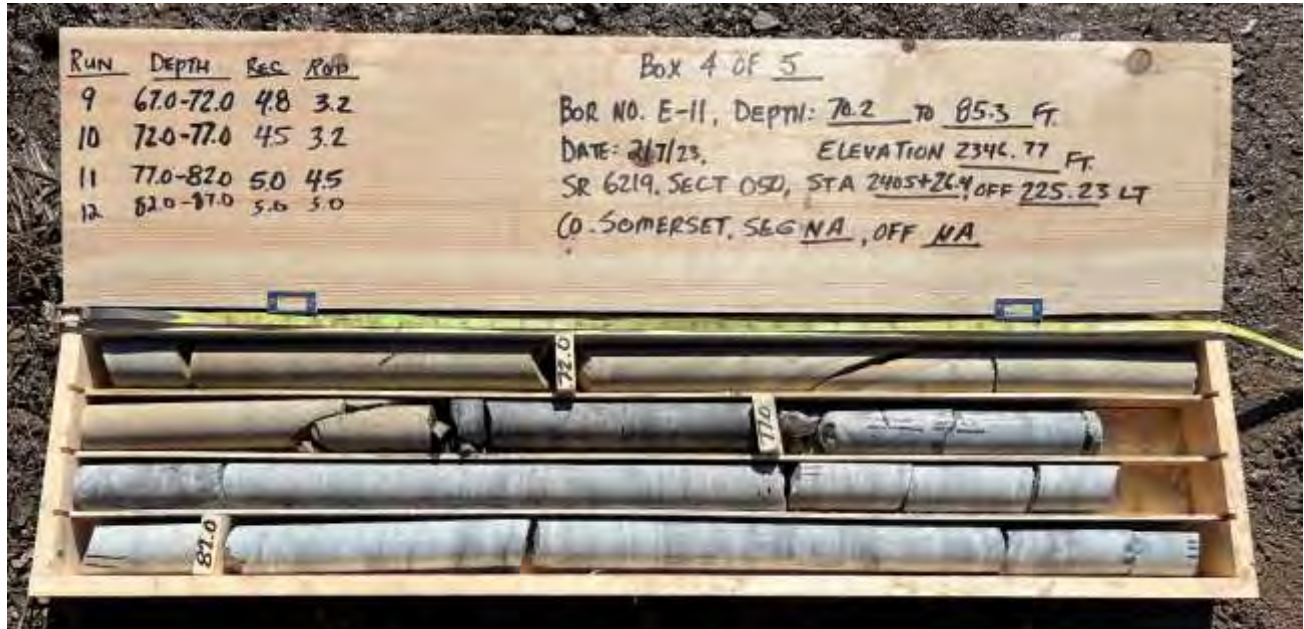 RUN DEPTH REC RQD
9 67.0-72.0 4.8 3.2
10 72.0-77.0 4.5 3.2
11 77.0-82.0 5.0 4.5
12 82.0-87.0 5.0 5.0
BOX 4 OF 5
BOR NO. E-11, DEPTH: 70.2 TO 85.3 FT.
DATE: 2/7/23, ELEVATION 2346.77 FT.
SR 6219, SECT 050, STA 2405+26.4, OFF 225.23 LT
CO. SOMERSET, SEG NA, OFF NA
72.0
77.0
82.0